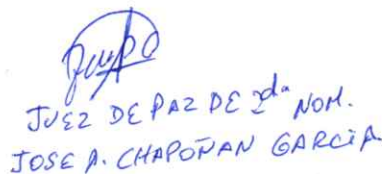 JUEZ DE PAZ DE 2da NOM.
JOSE A. CHAPOÑAN GARCIA